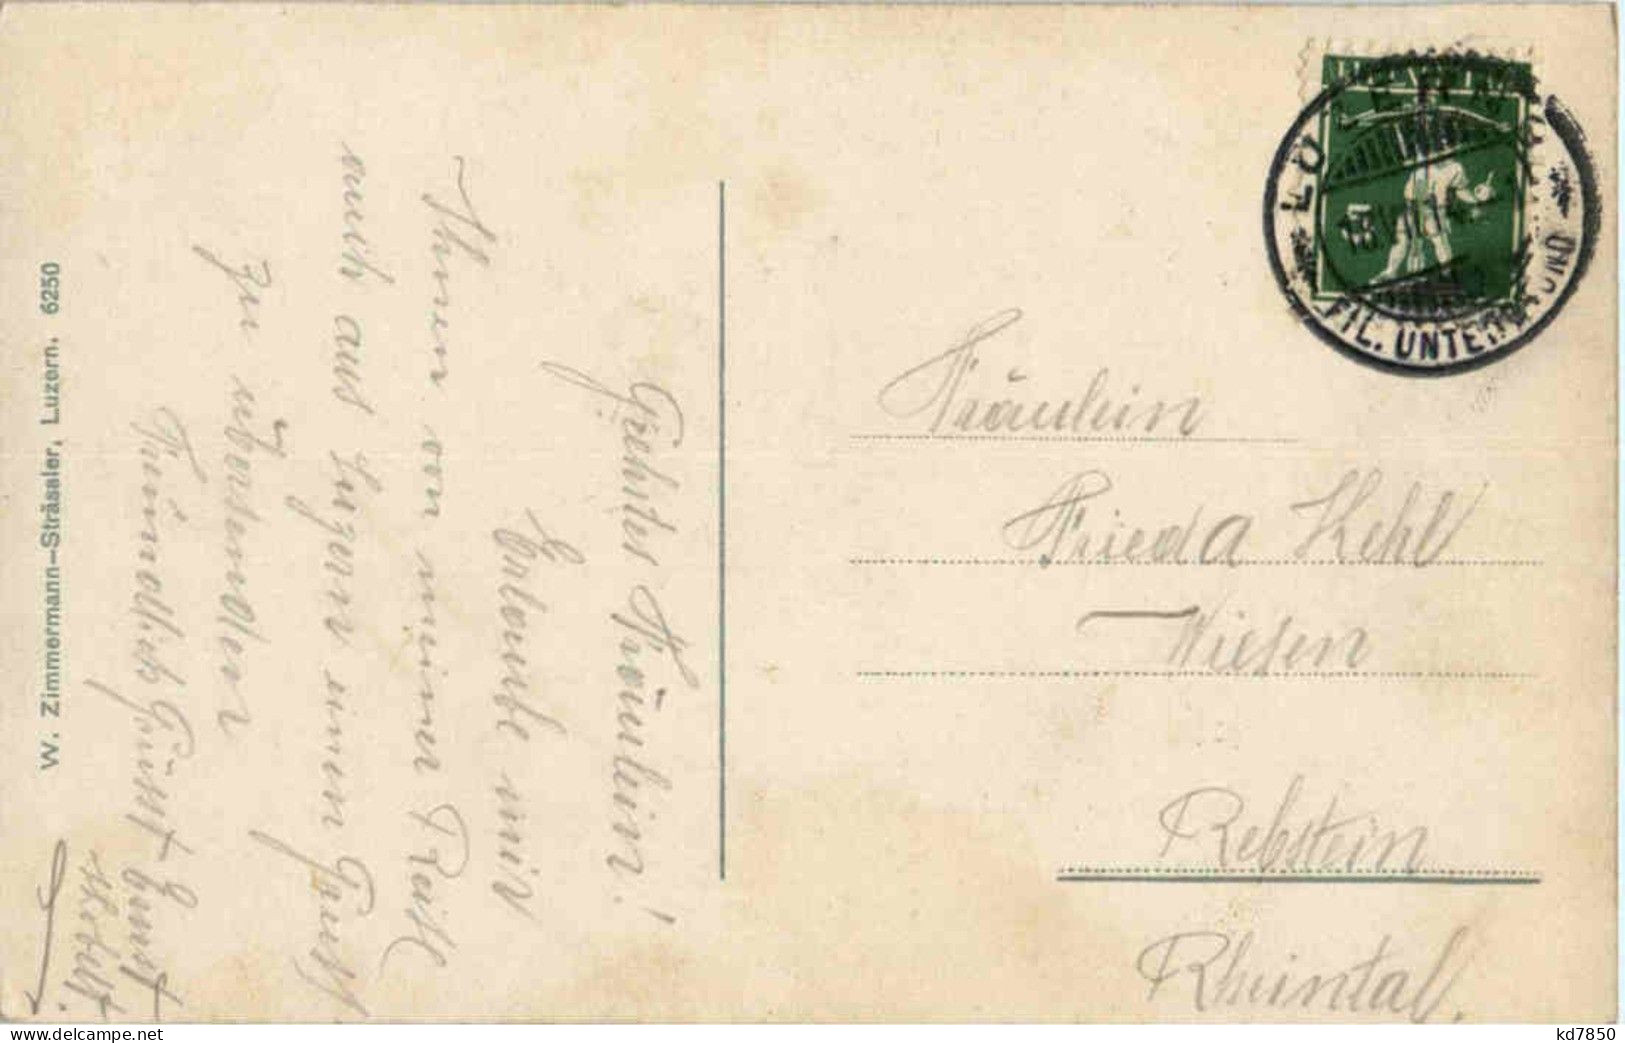 Geehrtes Fräulein!
Erlaube mir
Ihnen von meiner Reise
auch aus Luzern einen Gruss
zu übersenden
Freundlich Grüsst Ernst
Fräulein
Frieda Kehl
Wiesen
Rebstein
Rheintal.
W. Zimmermann-Strässler, Luzern. 6250
HELVETIA
LUZERN
FIL. UNTERGRUND
kd7850